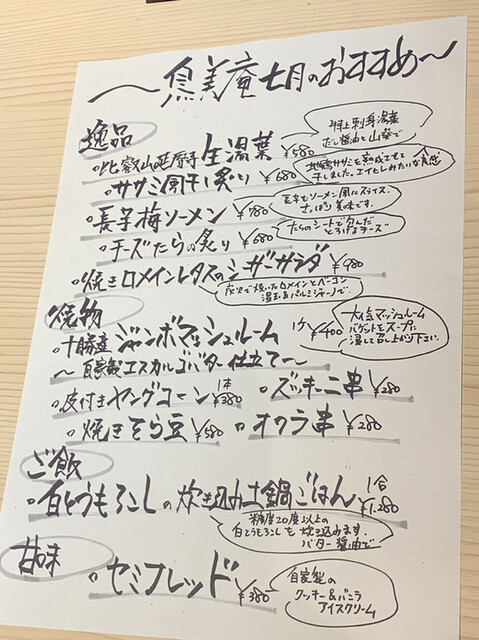 〜鳥美庵七月のおすすめ〜
逸品
・比叡山延暦寺 生湯葉 ¥680
特上刺身湯葉
だし醤油と山葵で
・ササミ風干し炙り ¥680
地鶏ササミを熟成させて
干しました。エイヒレみたいな食感
・長芋梅ソーメン ¥780
長芋をソーメン風にスライス、
さっぱり美味です。
・チーズたらの炙り ¥680
たらのシートで包んだ
とろけるチーズ
・焼きロメインレタスのシーザーサラダ ¥980
炭火で焼いたロメインとベーコン
温玉&パルミジャーノで
焼物
・十勝産ジャンボマッシュルーム 1ケ ¥400
〜自家製エスカルゴバター仕立て〜
大人気マッシュルーム
バケットとスープに
浸して召し上がり下さい。
・皮付きヤングコーン 1本 ¥380 ・ズッキーニ串 ¥280
・焼きそら豆 ¥580 ・オクラ串 ¥280
ご飯
・白とうもろこしの炊き込み土鍋ごはん 1合 ¥1,280
糖度20度以上の
白とうもろこしを炊き込みます。
バター醤油で
甘味
・セミフレッド ¥380
自家製の
クッキー&バニラ
アイスクリーム